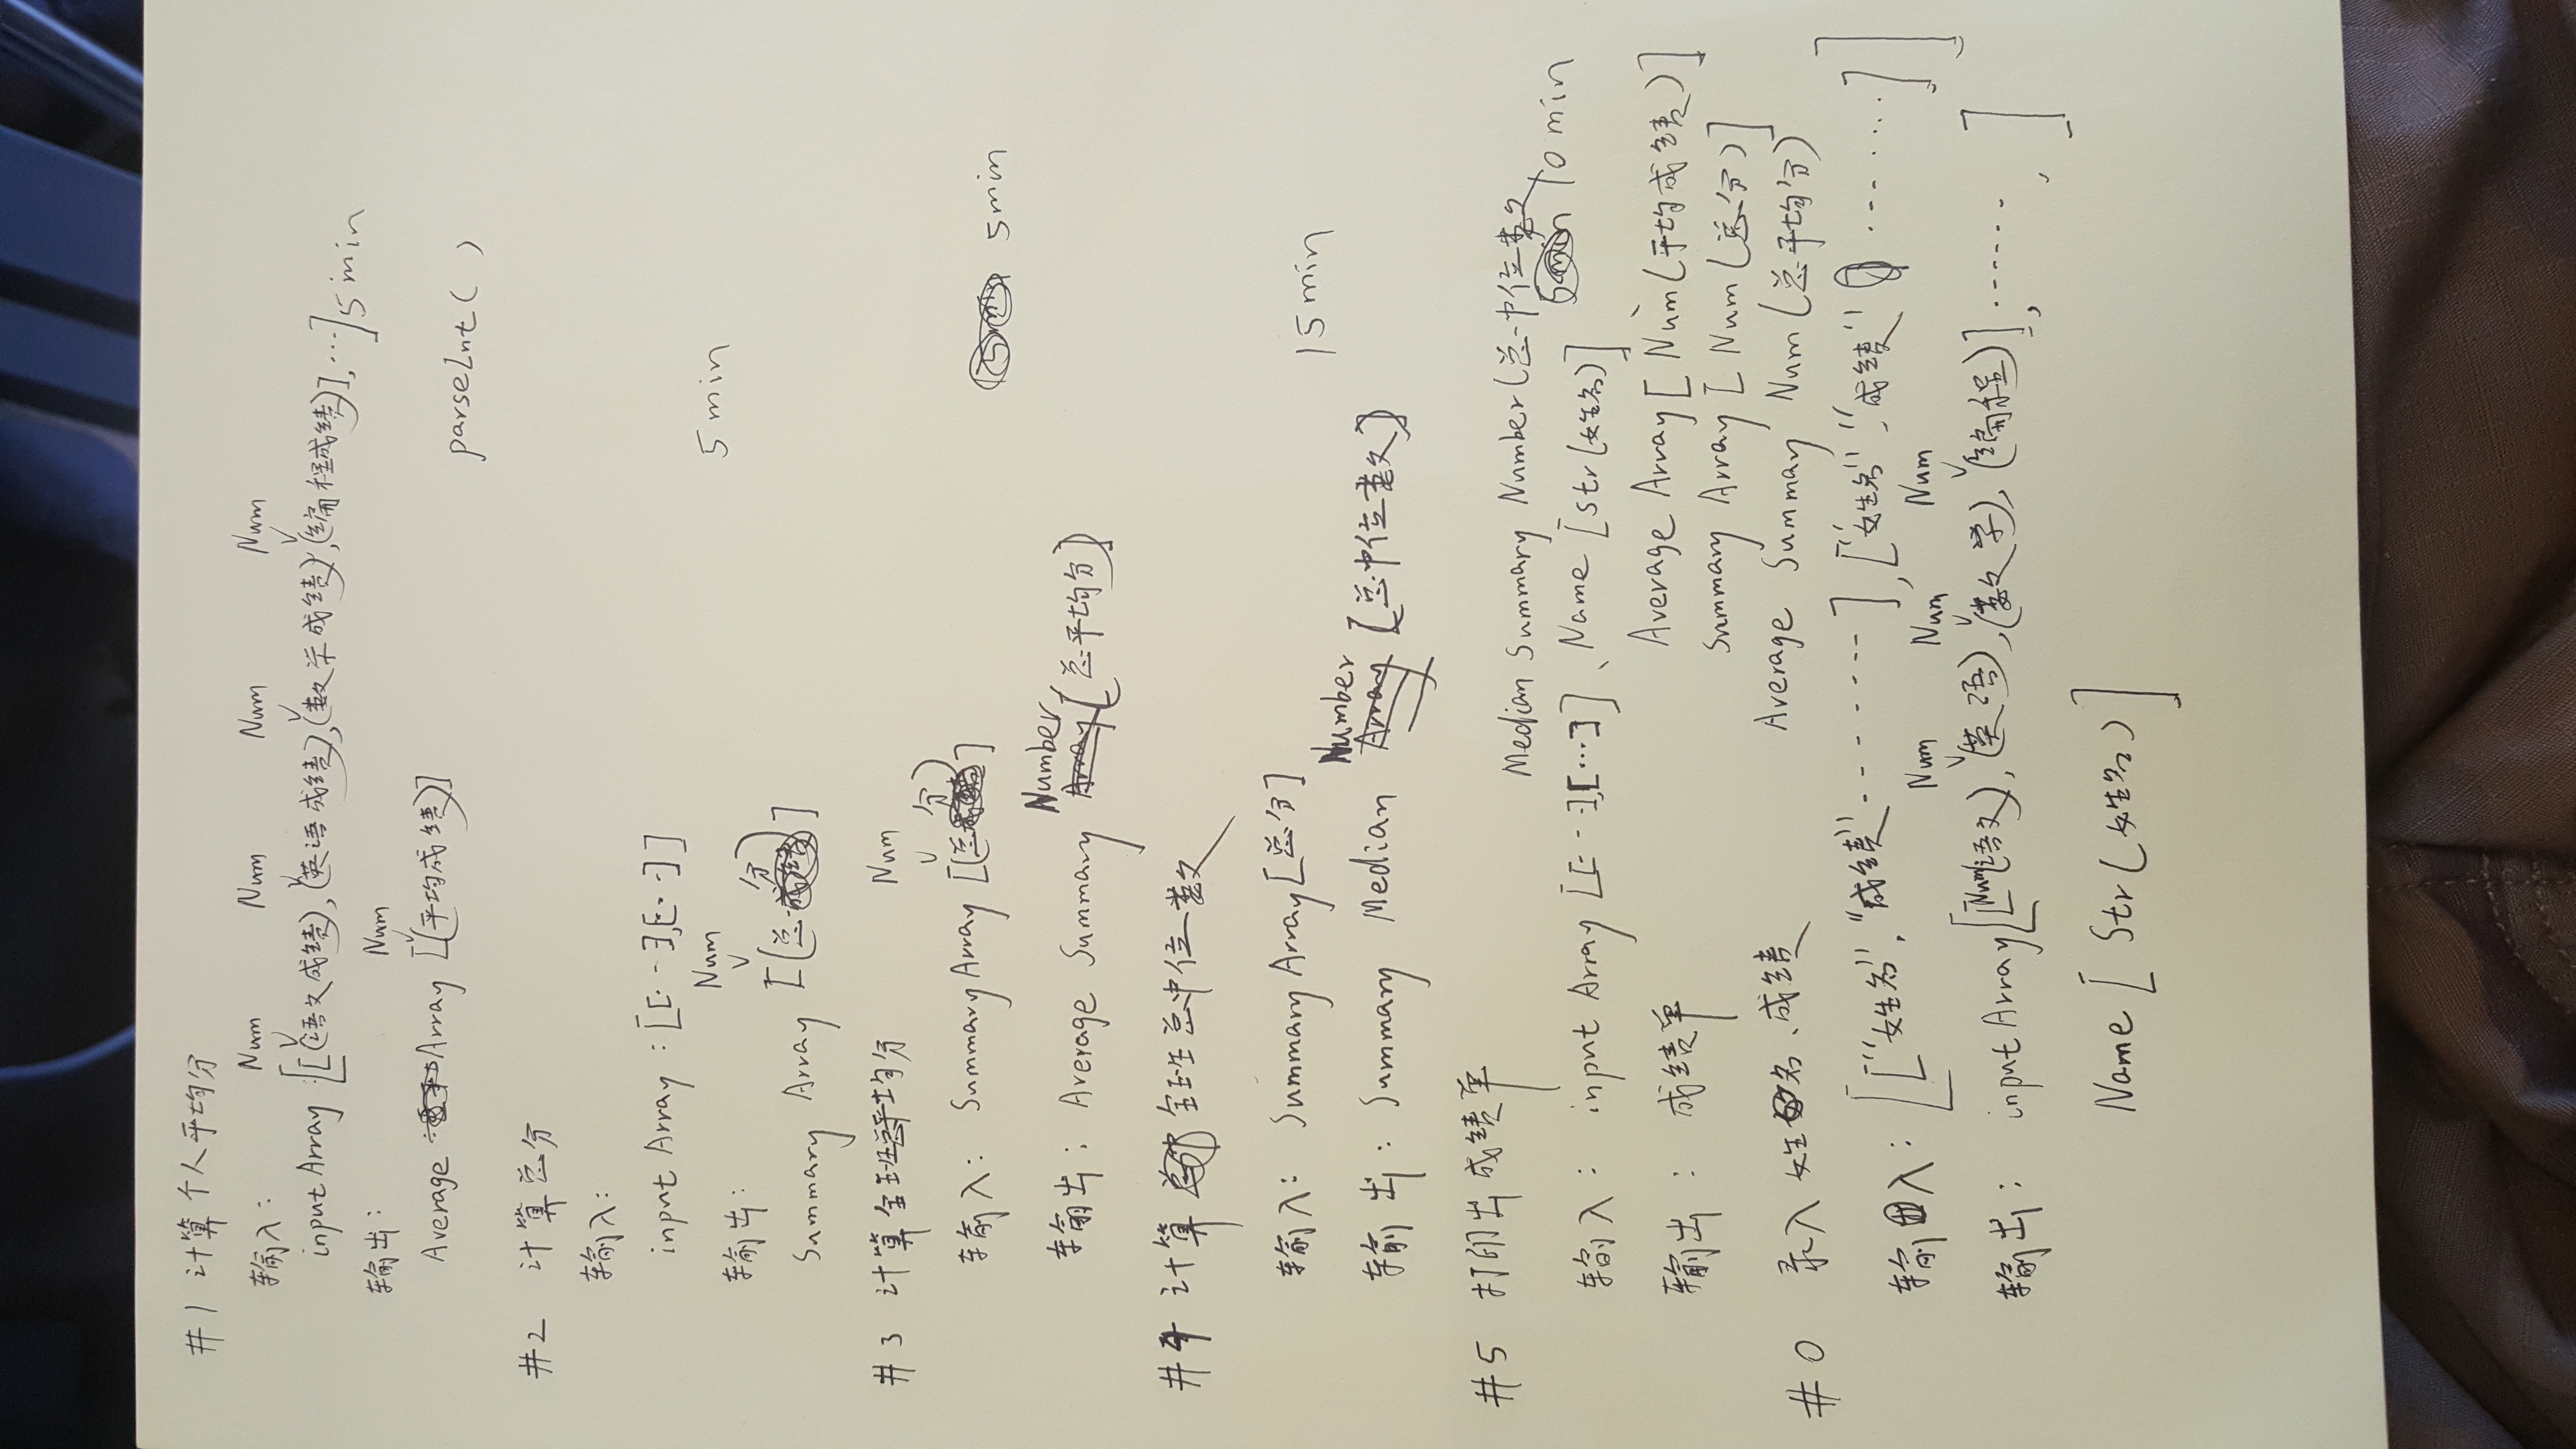 #1 计算个人平均分
输入:
Num Num Num Num
inputArray [[(语文成绩),(英语成绩),(数学成绩),(编程成绩)],...] 5min
输出:
Num
Average Array [(平均成绩)]
parseInt( )
#2 计算总分
输入:
input Array : [[..-],[..-]]
5min
输出:
Num
Summary Array [(总分)]
#3 计算全班总平均分
Num
输入: Summary Array [(总分)]
5min
输出: Average Summary Number (总平均分)
#4 计算全班总中位数
输入: Summary Array [总分]
15min
输出: Summary Median Number [总中位数]
#5 打印出成绩单
Median Summary Number(总中位数
10min
输入: input Array [[..-],[...]]、Name [Str(姓名)]
Average Array [Num(平均成绩)]
输出: 成绩单
Summary Array [Num(总分)]
Average Summary Num(总平均分)
#0 录入姓名、成绩
输入: [["姓名","成绩"--------],["姓名","成绩" ........]]
Num Num Num
输出: inputArray[[Num(语文),(英语),(数学),(编程)],......, ]
Name [Str(姓名)]